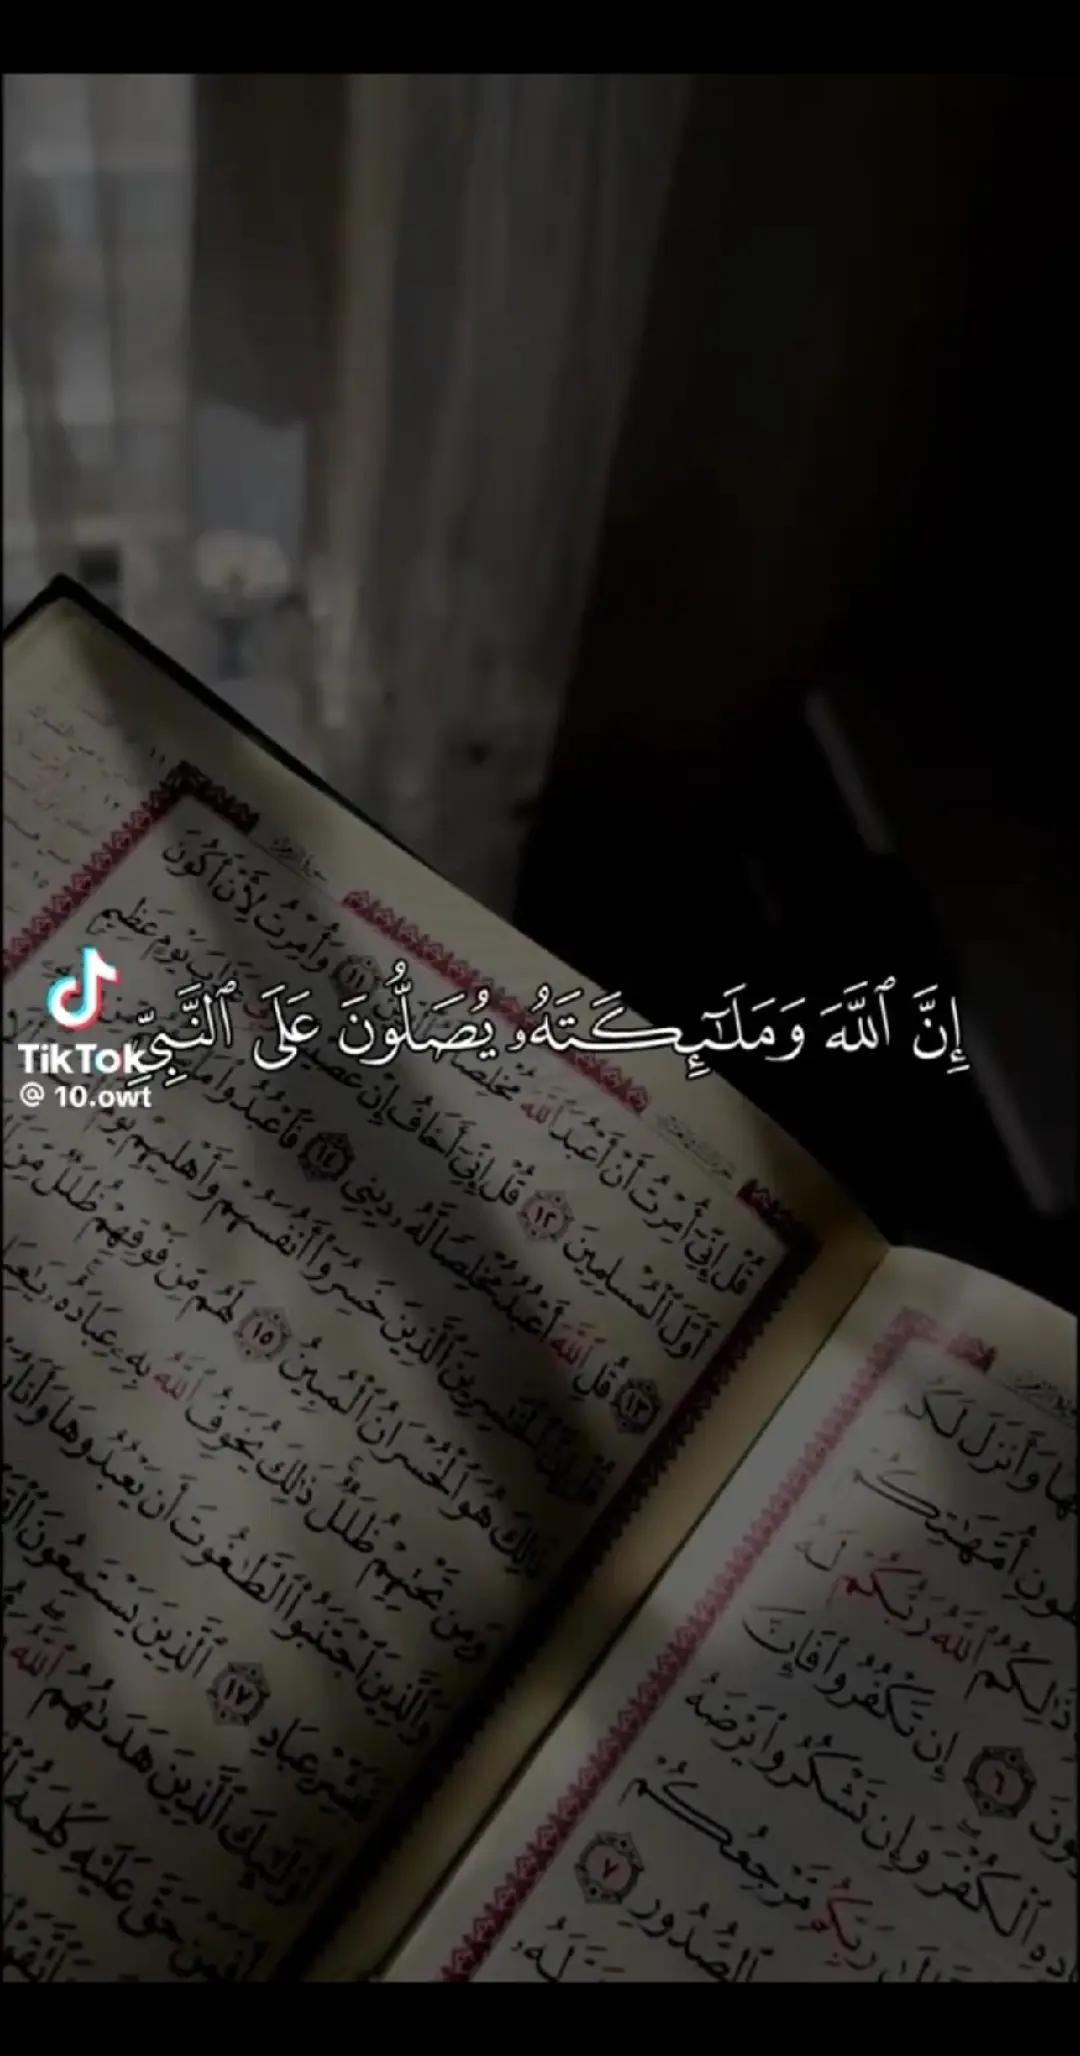 إِنَّ ٱللَّهَ وَمَلَـٰٓئِكَتَهُۥ يُصَلُّونَ عَلَى ٱلنَّبِيِّ
TikTok
@ 10.owt
وَأُمِرْتُ لِأَنْ أَكُونَ
قُلْ إِنِّىٓ أُمِرْتُ أَنْ أَعْبُدَ ٱللَّهَ مُخْلِصًا
أَوَّلَ ٱلْمُسْلِمِينَ ١٢ قُلْ إِنِّىٓ أَخَافُ إِنْ عَصَيْتُ يَوْمٍ عَظِيمٍ
١٣ قُلِ ٱللَّهَ أَعْبُدُ مُخْلِصًا لَّهُۥ دِينِى ١٤ فَٱعْبُدُوا۟ مَا
قُلْ إِنَّ ٱلْخَـٰسِرِينَ ٱلَّذِينَ خَسِرُوٓا۟ أَنفُسَهُمْ وَأَهْلِيهِمْ يَوْمَ
ذَٰلِكَ هُوَ ٱلْخُسْرَانُ ٱلْمُبِينُ ١٥ لَهُم مِّن فَوْقِهِمْ ظُلَلٌ مِّنَ
وَمِن تَحْتِهِمْ ظُلَلٌ ذَٰلِكَ يُخَوِّفُ ٱللَّهُ بِهِۦ عِبَادَهُۥ
وَٱلَّذِينَ ٱجْتَنَبُوا۟ ٱلطَّـٰغُوتَ أَن يَعْبُدُوهَا وَأَنَابُوٓا۟
فَبَشِّرْ عِبَادِ ١٧ ٱلَّذِينَ يَسْتَمِعُونَ
أُو۟لَـٰٓئِكَ ٱلَّذِينَ هَدَىٰهُمُ ٱللَّهُ
أَفَمَنْ حَقَّ عَلَيْهِ كَلِمَةُ
وَأَنزَلَ لَكُم
أُمَّهَـٰتِكُمْ
ذَٰلِكُمُ ٱللَّهُ رَبُّكُمْ لَهُ
٦ إِن تَكْفُرُوا۟ فَإِنَّ
ٱلْكُفْرَ وَإِن تَشْكُرُوا۟ يَرْضَهُ
رَبِّكُم مَّرْجِعُكُمْ
ٱلصُّدُورِ ٧